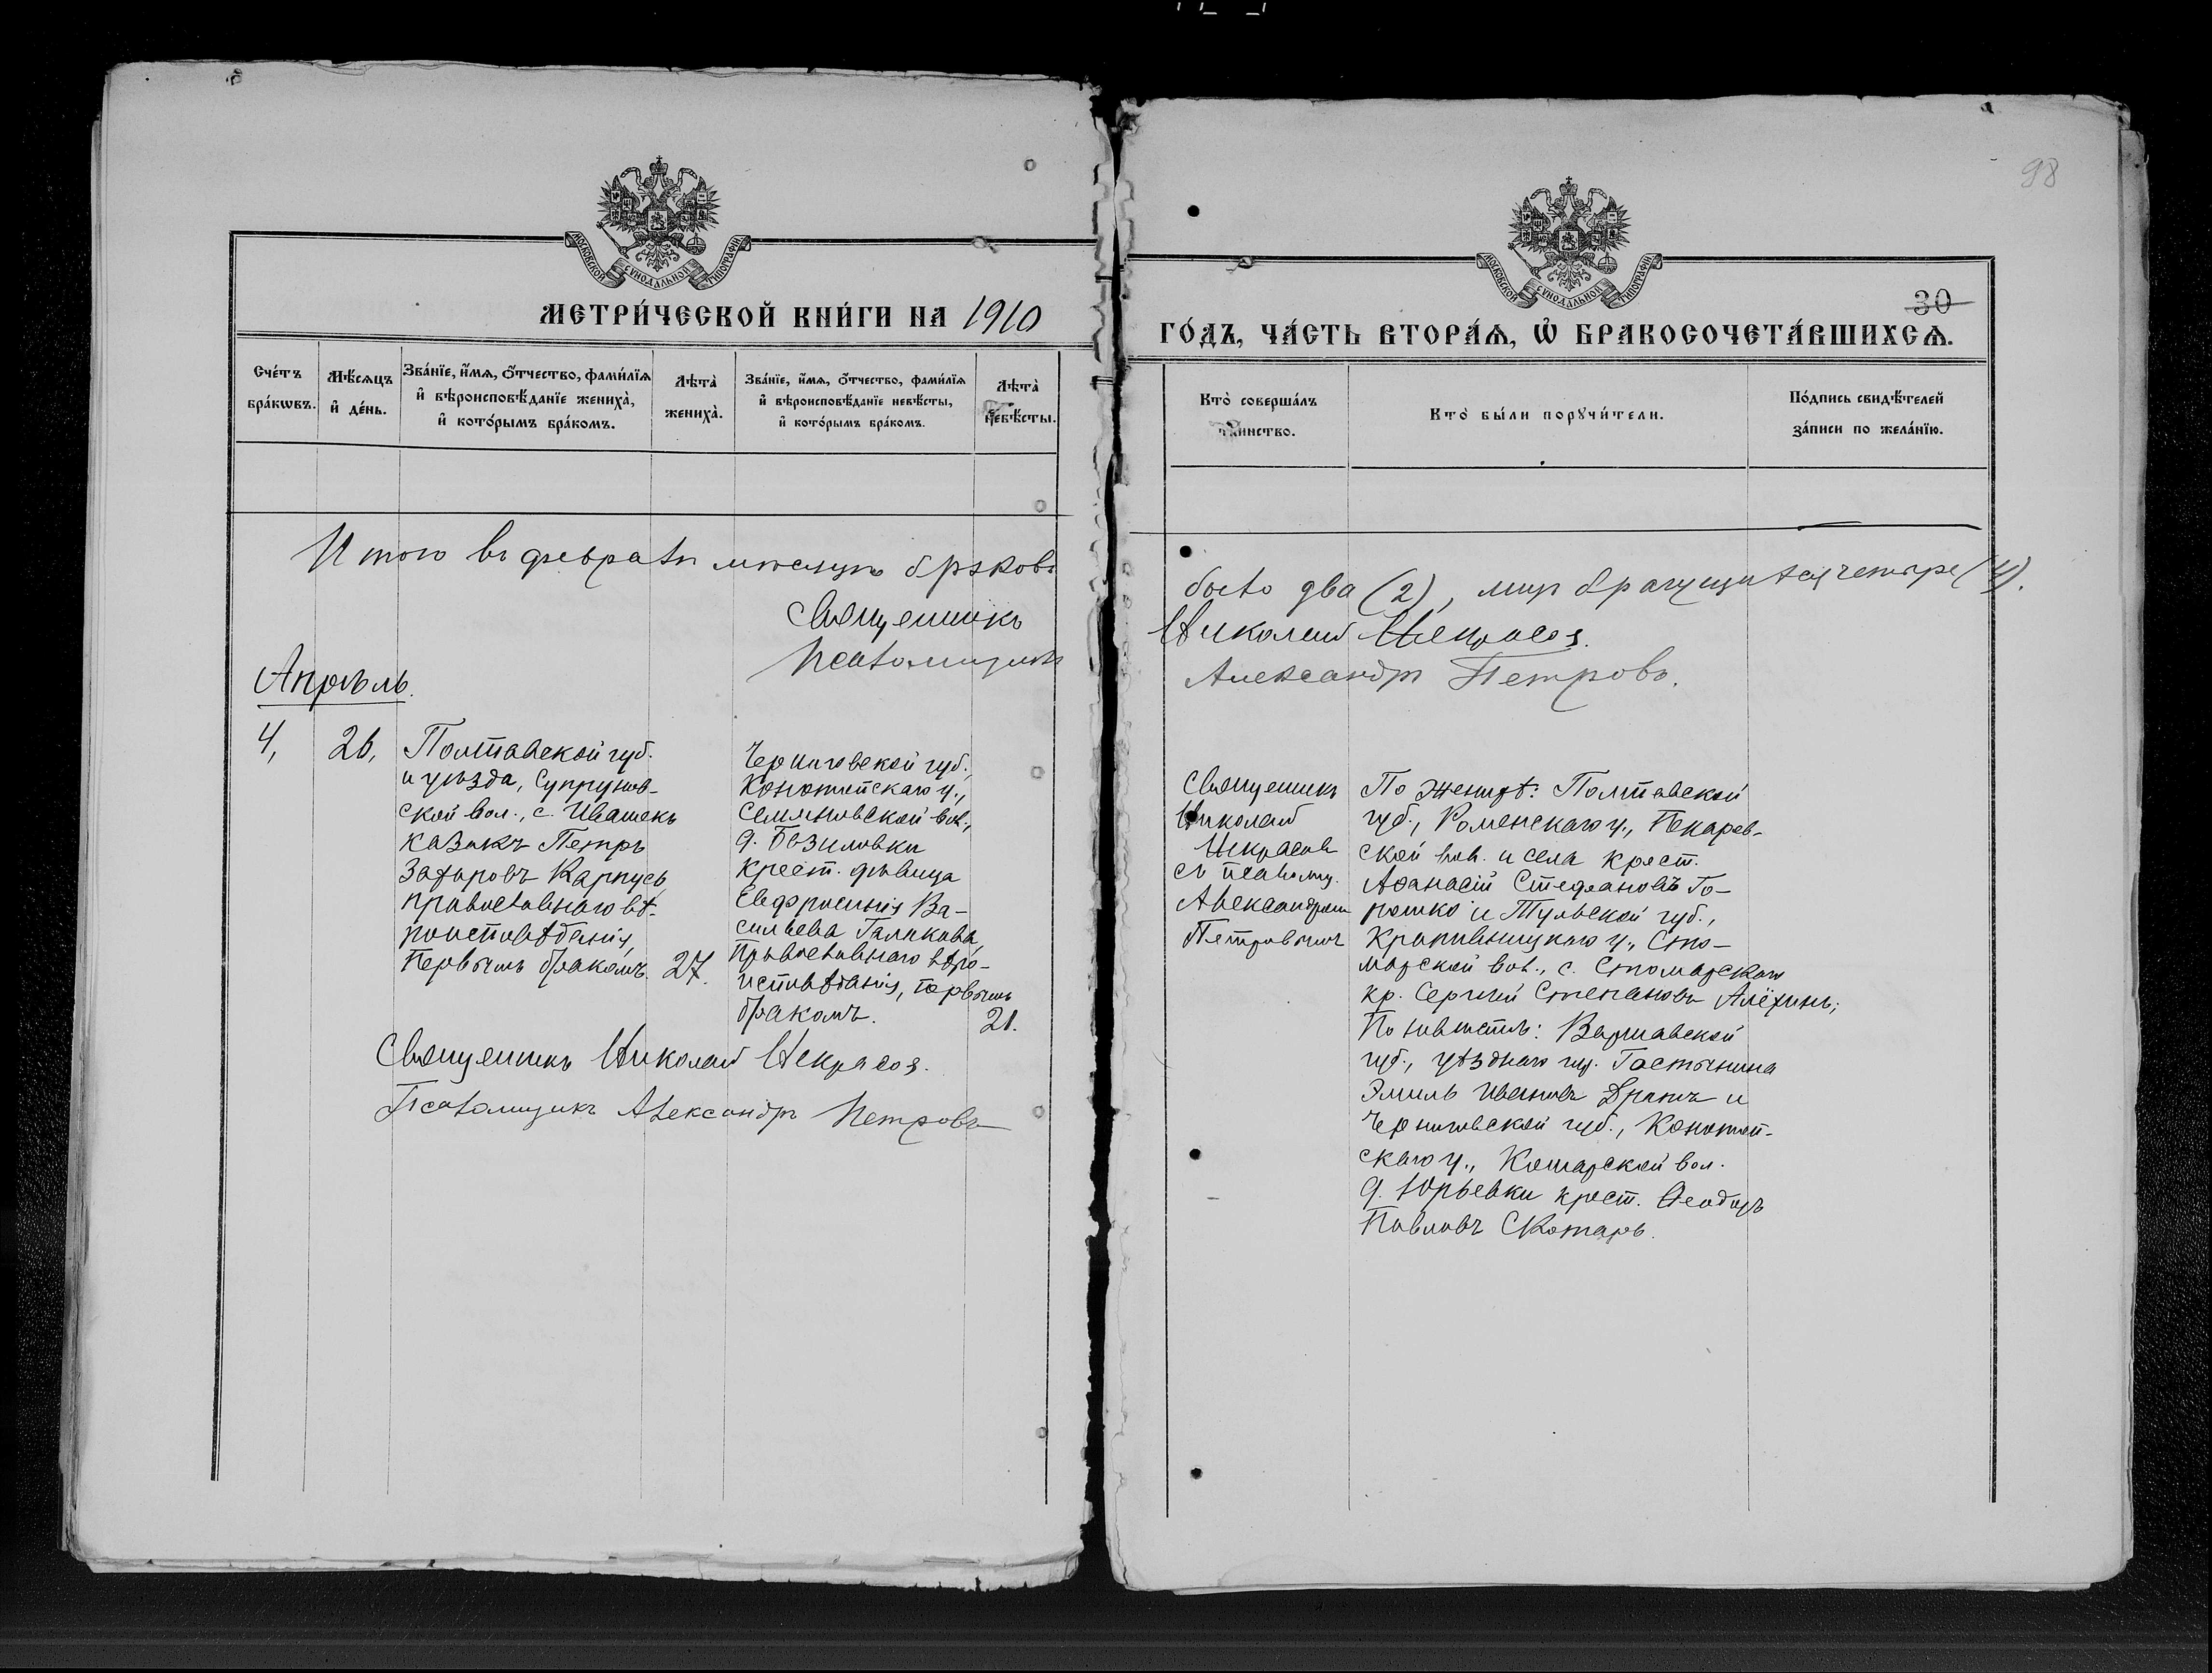 98
МОСКОВСКОЙ СѴНОДАЛЬНОЙ ТИПОГРАФІИ
МОСКОВСКОЙ СѴНОДАЛЬНОЙ ТИПОГРАФІИ
МЕТРИ́ЧЕСКОЙ КНИ́ГИ НА 1910
30
ГО́ДЪ, ЧА́СТЬ ВТОРА́Ѧ, Ѽ БРАКОСОЧЕТА́ВШИХСѦ.
Сче́тъ бра́кѡвъ.
Мѣ́сяцъ и҆ де́нь.
Зва́нїе, и҆́мѧ, ѻ҆́тчество, фами́лїѧ
и҆ вѣроисповѣ́данїе жениха̀,
и҆ кото́рымъ бра́комъ.
Лѣта̀ жениха̀.
Зва́нїе, и҆́мѧ, ѻ҆́тчество, фами́лїѧ
и҆ вѣроисповѣ́данїе невѣ́сты,
и҆ кото́рымъ бра́комъ.
Лѣта̀ невѣ́сты.
Кто̀ соверша́лъ та́инство.
Кто̀ бы́ли порꙋчи́тели.
По́дпись свидѣ́телей
за́писи по жела́нїю.
Итого въ февралѣ мѣсяцѣ браковъ
было два (2), лицъ брачущихся четыре (4).
Священникъ
Николай Некрасов.
Псаломщикъ
Александръ Петровъ.
Апрѣль.
4,
26,
Полтавской губ.
и уѣзда, Супрунов-
ской вол., с. Ивашекъ
казакъ Петръ
Захаровъ Карпусь,
православнаго вѣ-
роисповѣданія,
первымъ бракомъ.
27.
Черниговской губ.,
Конотопскаго у.,
Семяновской вол.,
д. Базиловки
крест. дѣвица
Евфросинія Ва-
сильева Галакова,
православнаго вѣро-
исповѣданія, первымъ
бракомъ.
21.
Священникъ Николай Некрасов.
Псаломщикъ Александръ Петровъ
Священникъ
Николай
Некрасов
съ псаломщ.
Александромъ
Петровымъ
По женихѣ: Полтавской
губ., Роменскаго у., Пекарев-
ской вол. и села крест.
Аѳанасій Стефановъ Го-
рошко и Тульской губ.,
Крапивницкаго у., Сто-
марской вол., с. Стомарскаго
кр. Сергѣй Степановъ Алёхинъ;
По невѣстѣ: Варшавской
губ., уѣзднаго гор. Гостынина
Эмиль Ивановъ и
Черниговской губ., Конотоп-
скаго у., Кошарской вол.
д. Юрьевки крест. Ѳеодоръ
Павловъ Скотарь.